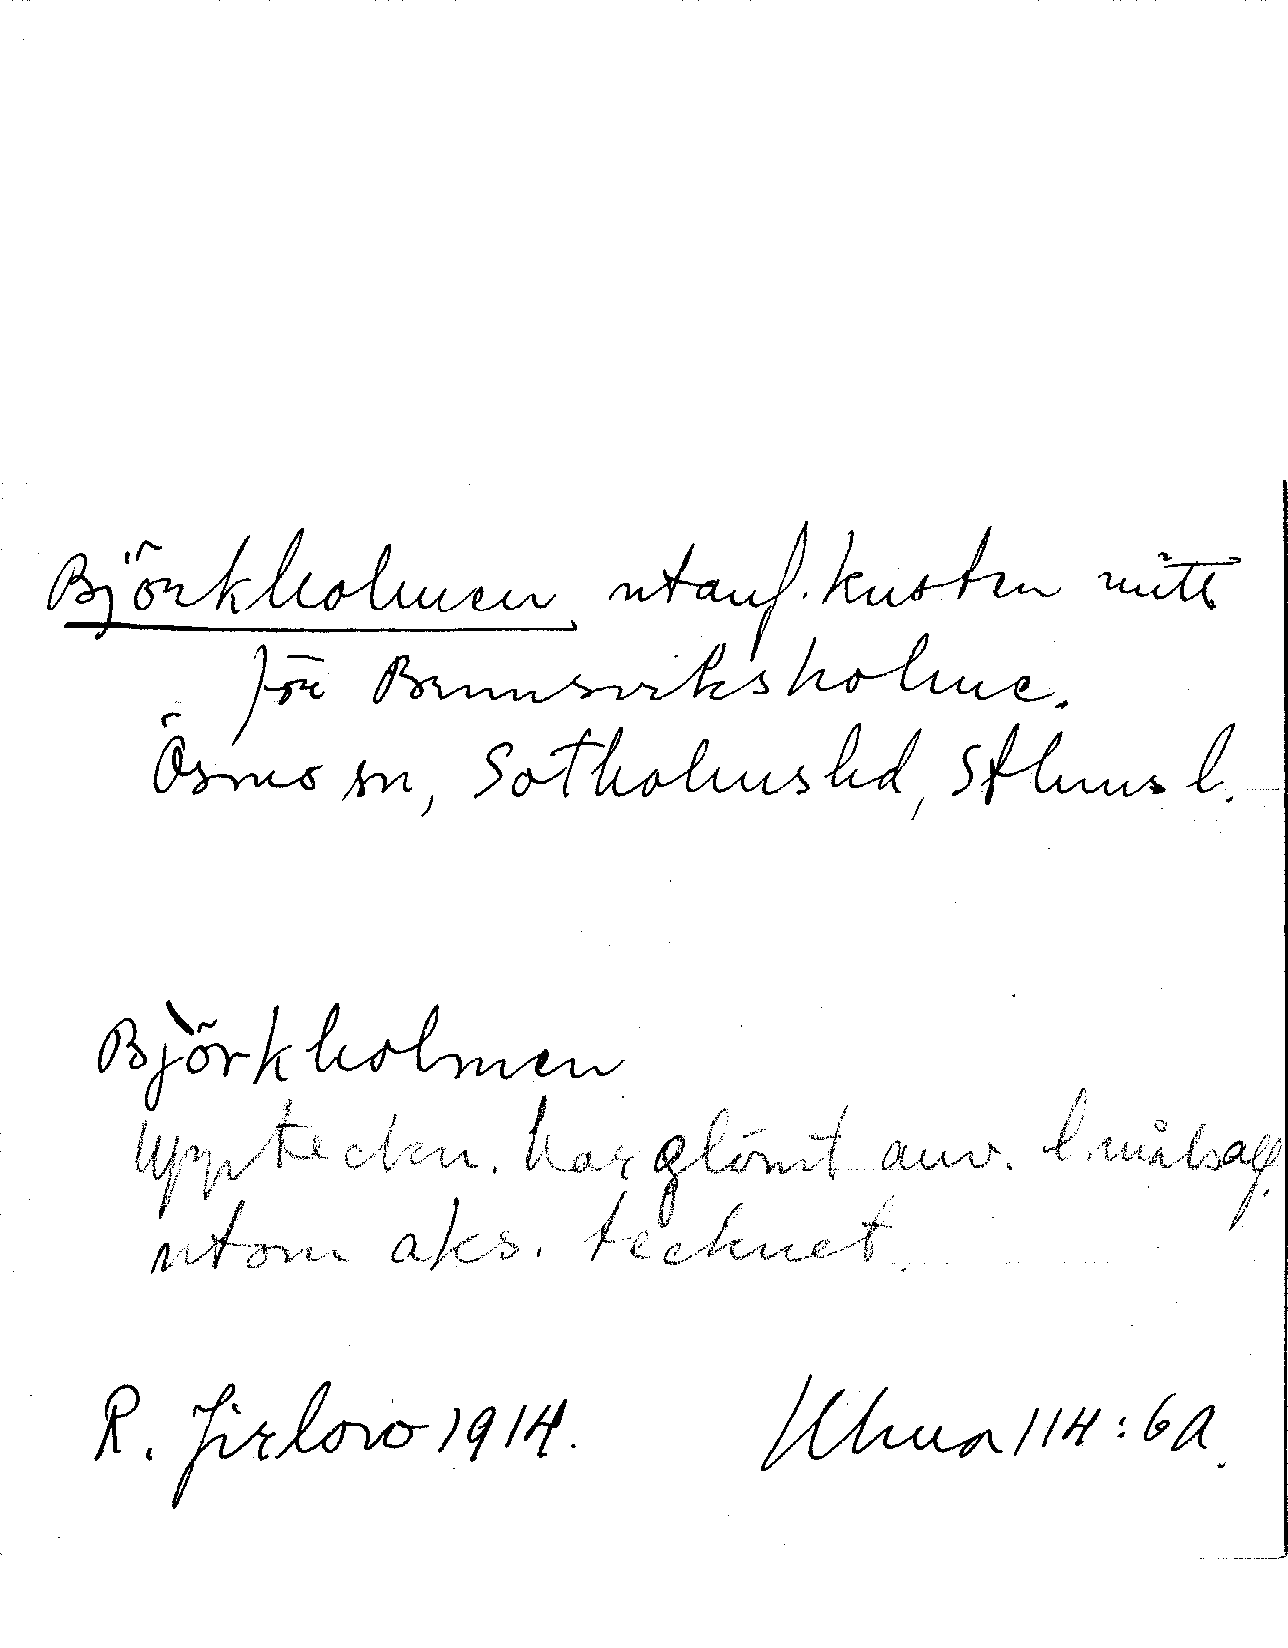 Björkholmen utanf. kusten mitt
för Brunsviksholme.
Ösmo sn, Sotholms hd, Sthms l.
Björkholmen
Uppteckn. har glömt anv. l.målsalf.
utom aks. tecknet.
R. Jirlow 1914. 114:6A.